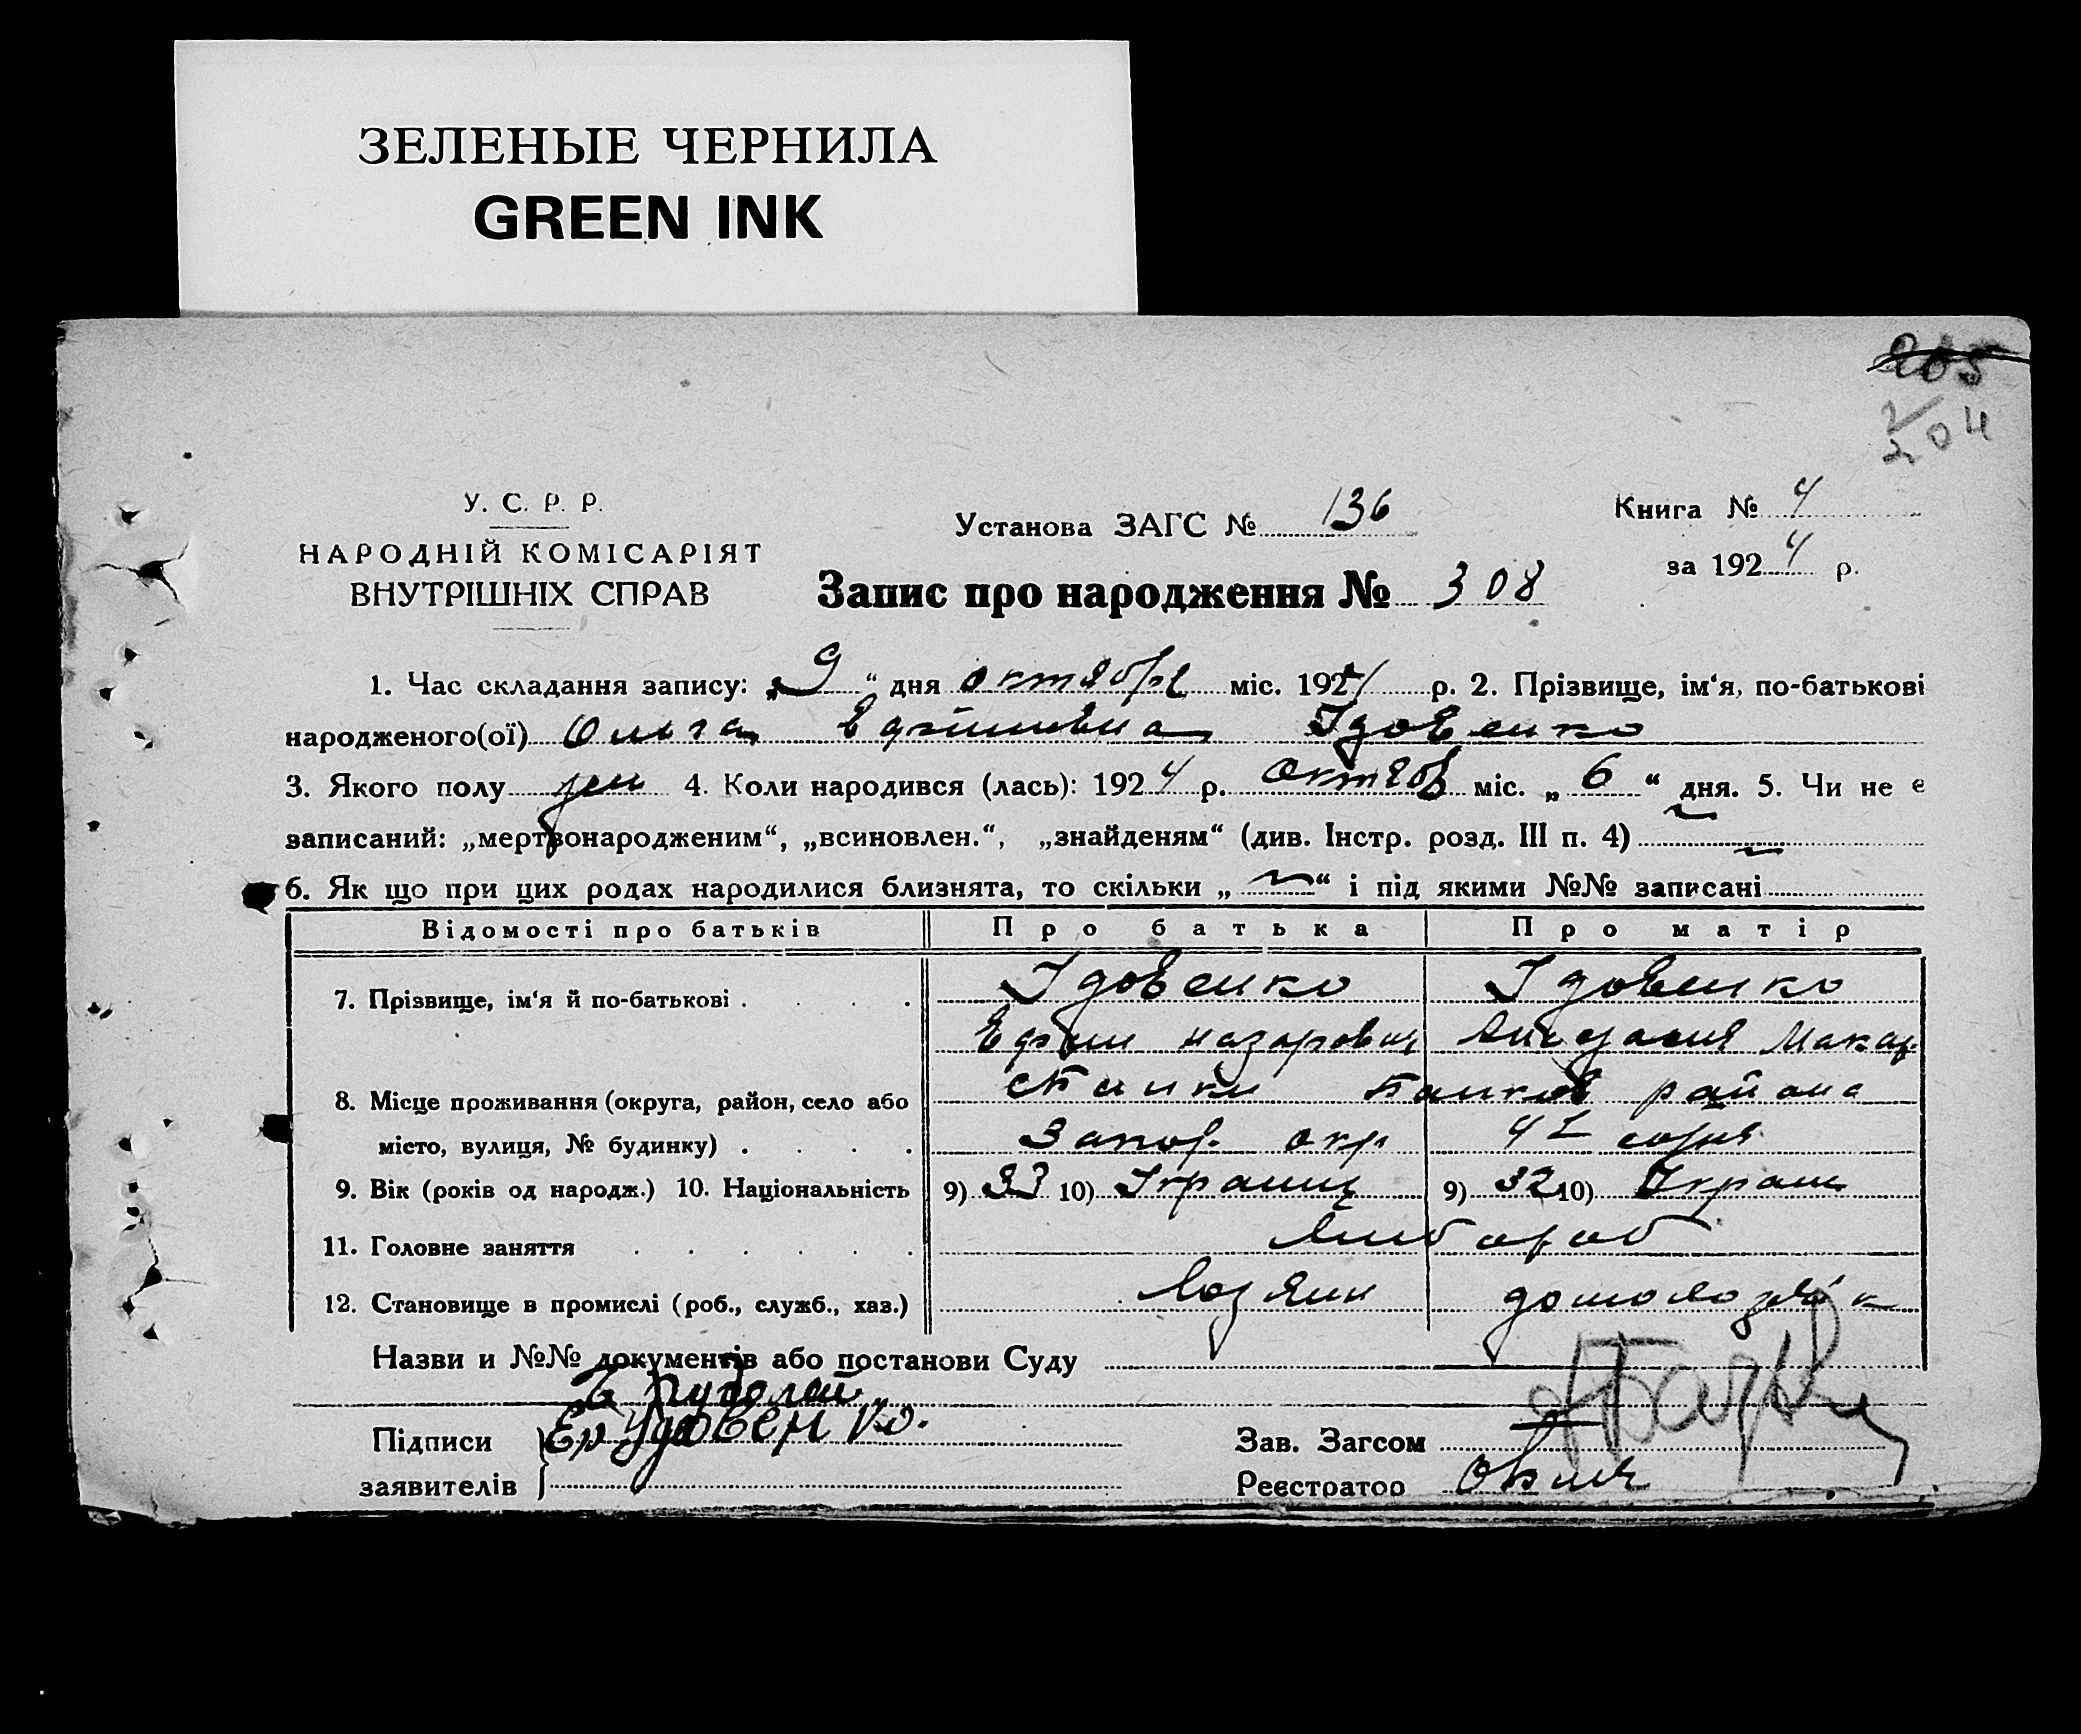 ЗЕЛЕНЫЕ ЧЕРНИЛА
GREEN INK
205
204
У. С. Р. Р.
НАРОДНІЙ КОМІСАРІЯТ
ВНУТРІШНІХ СПРАВ
Установа ЗАГС № 136
Книга № 4
за 1924 р.
Запис про народження № 308
1. Час складання запису: „9“ дня октября міс. 1924 р. 2. Прізвище, ім‘я, по-батькові
народженого(ої) Ольга Ефимовна Удовенко
3. Якого полу жен 4. Коли народився (лась): 1924 р. октяб міс. „6“ дня. 5. Чи не є
записаний: „мертвонародженим“, „всиновлен.“, „знайденям“ (див. Інстр. розд. III п. 4)
6. Як що при цих родах народилися близнята, то скільки „ “ і під якими №№ записані
Відомості про батьків Про батька Про матір
7. Прізвище, ім‘я й по-батькові Удовенко Удовенко
Ефим Назарович Макар
8. Місце проживання (округа, район, село або района
місто, вулиця, № будинку) Запор. окр
9. Вік (років од народж.) 10. Національність 9) 33 10) Украинц 9) 32 10) Украин
11. Головне заняття хлебороб
12. Становище в промислі (роб., служб., хаз.) хозяин домохозяйк
Назви и №№ документів або постанови Суду
Підписи Удовенко.
заявителів
Зав. Загсом
Реєстратор